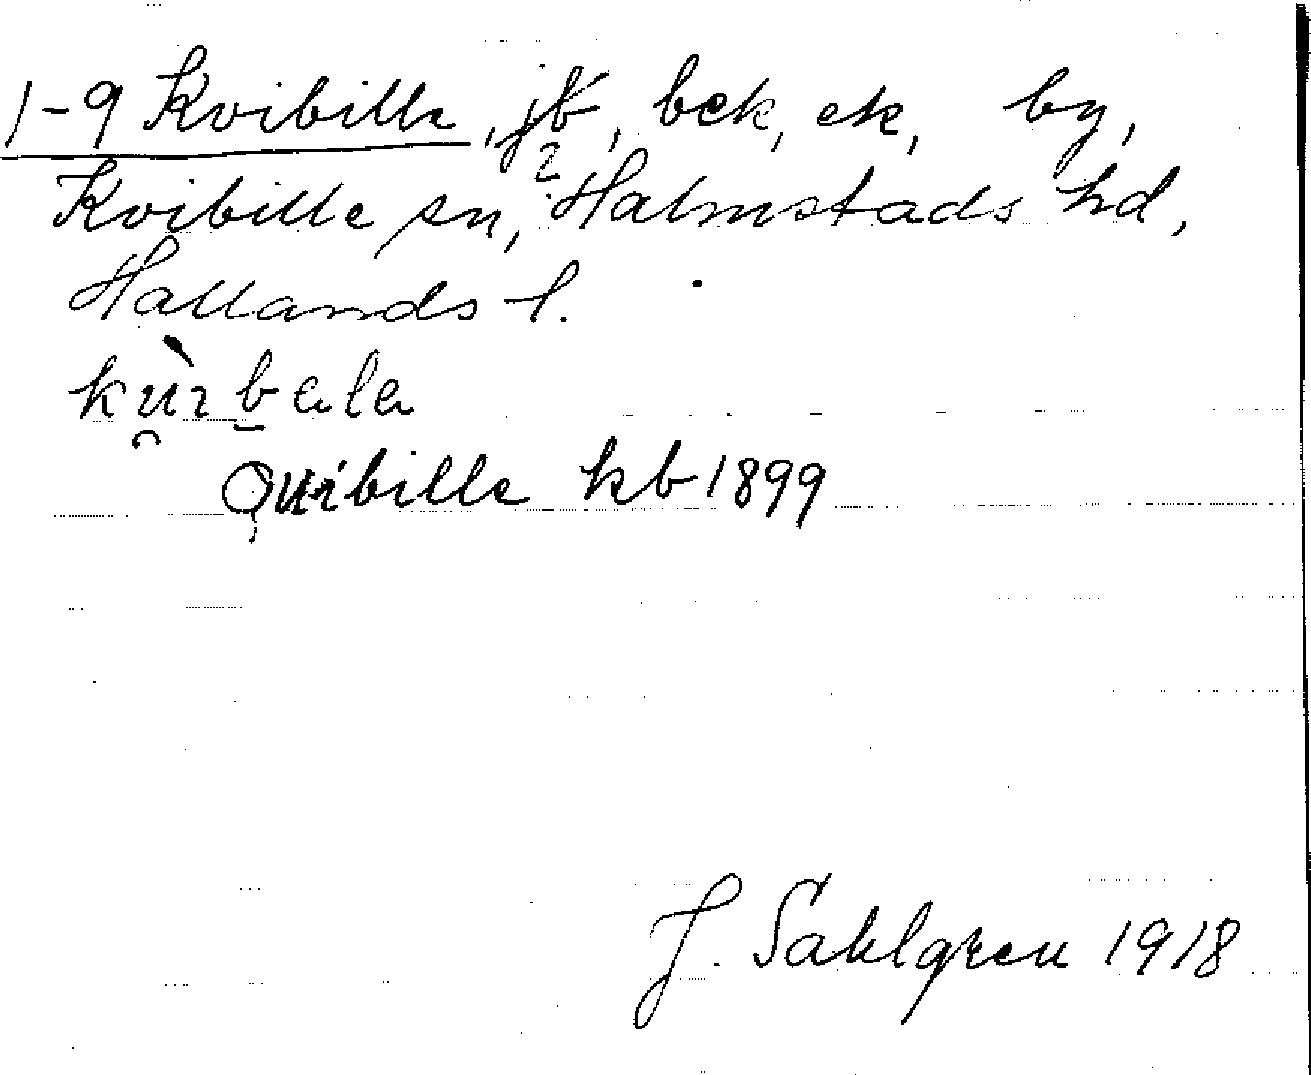 1-9 Kvibille, jb, bek, ek, by,
Kvibille sn, 2 Halmstads hd,
Hallands l.
Quibille kb 1899
J. Sahlgren 1918